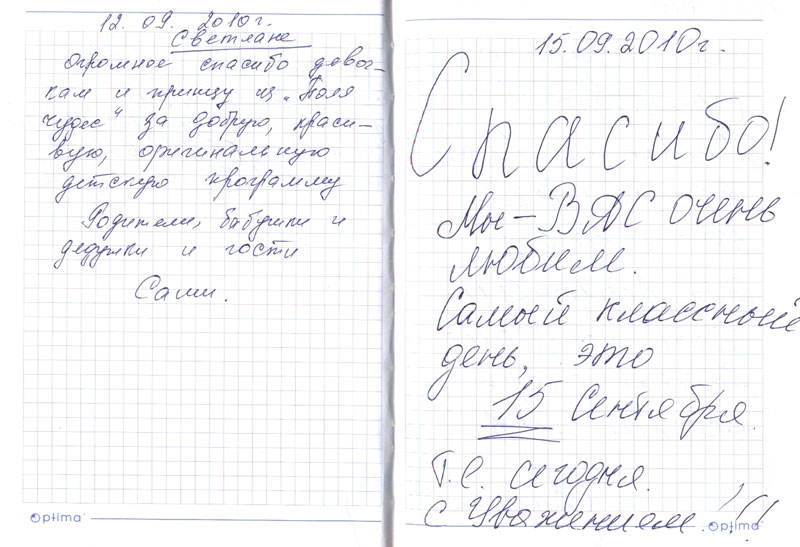 12. 09. 2010г.
Светлане
Огромное спасибо девоч-
кам и принцу из „Поля
чудес" за добрую, краси-
вую, оригинальную
детскую программу
Родители, бабушки и
дедушки и гости
Саши.
optima
15.09.2010г.
Спасибо!
Мы - ВАС очень
любим.
Самый классный
день, это
15 Сентября.
Т.е. сегодня.
с Уважением!!!
optima